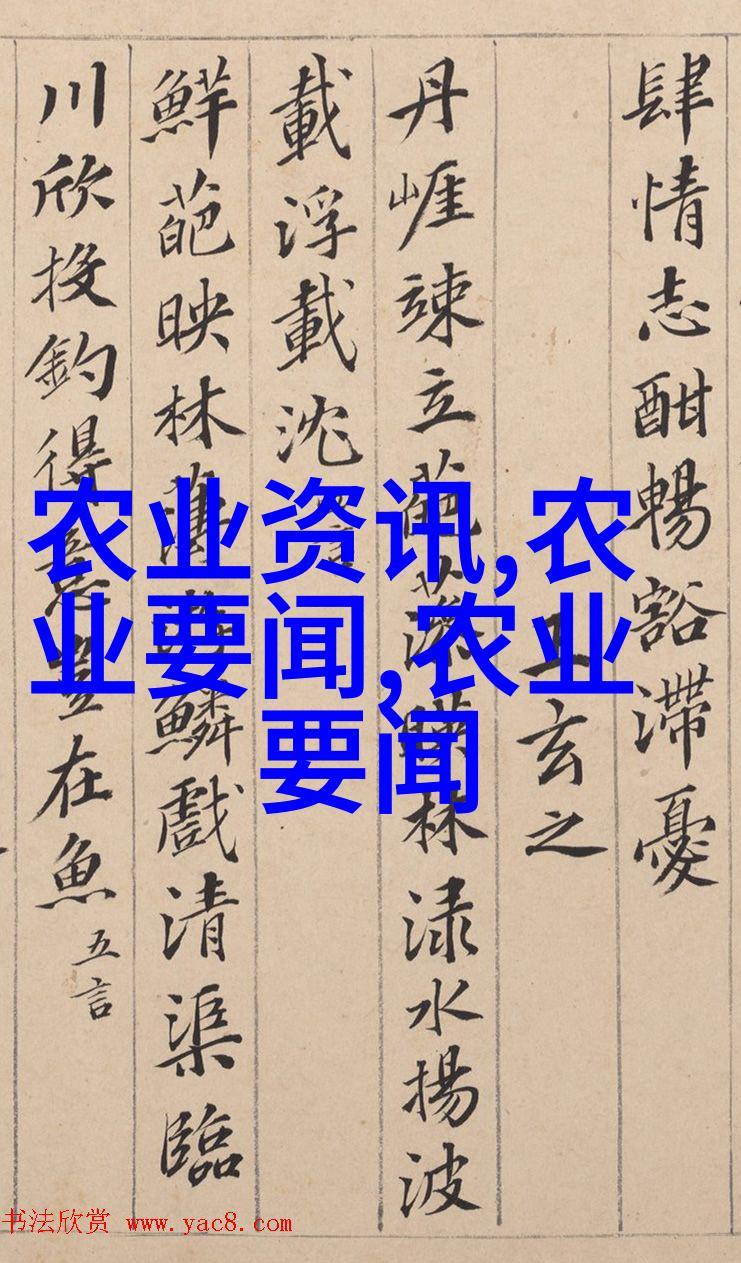 肆情志酣暢豁滯憂
王玄之
丹崕竦立葩藻暎林渌水揚波
載浮載沈
鮮葩映林薄遊鱗戲清渠臨
川欣投釣得意豈在魚 五言
农业资讯,农
业要闻,农业
要闻
书法欣赏 www.yac8.com